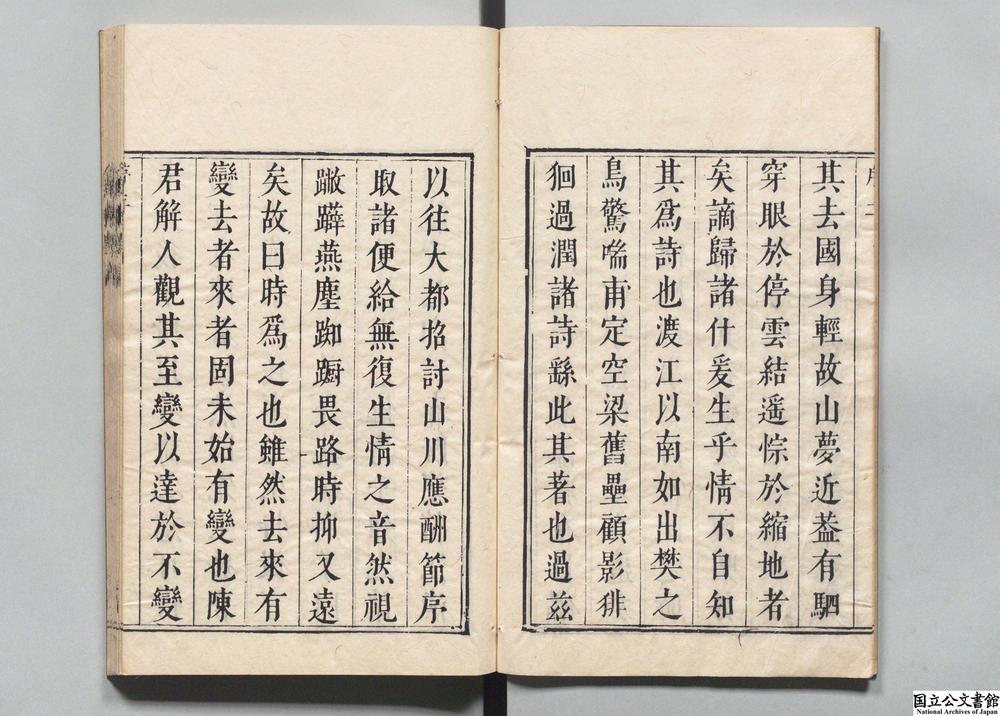 其去國身輕故山夢近葢有駟
穿眼於停雲結遥悰於縮地者
矣謫歸諸什爰生乎情不自知
其爲詩也渡江以南如出樊之
鳥驚喘甫定空梁舊壘顧影徘
徊過澗諸詩繇此其著也過兹
以往大都招討山川應酬節序
取諸便給無復生情之音然視
蹴躃燕塵踟蹰畏路時抑又遠
矣故曰時爲之也雖然去來有
變去者來者固未始有變也陳
君解人觀其至變以達於不變
国立公文書館
National Archives of Japan